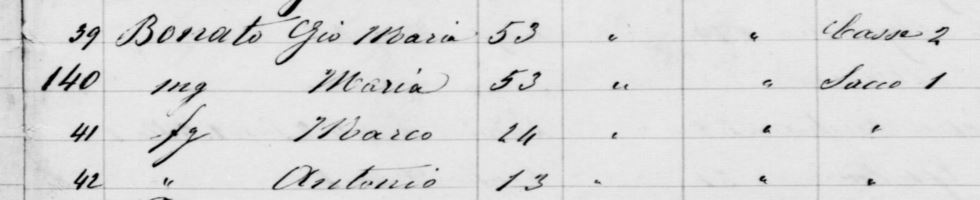 39 Bonato Gio Maria 53 " " Casse 2
140 mg Maria 53 " " Sacco 1
41 fg Marco 24 " " "
42 " Antonio 13 " " "